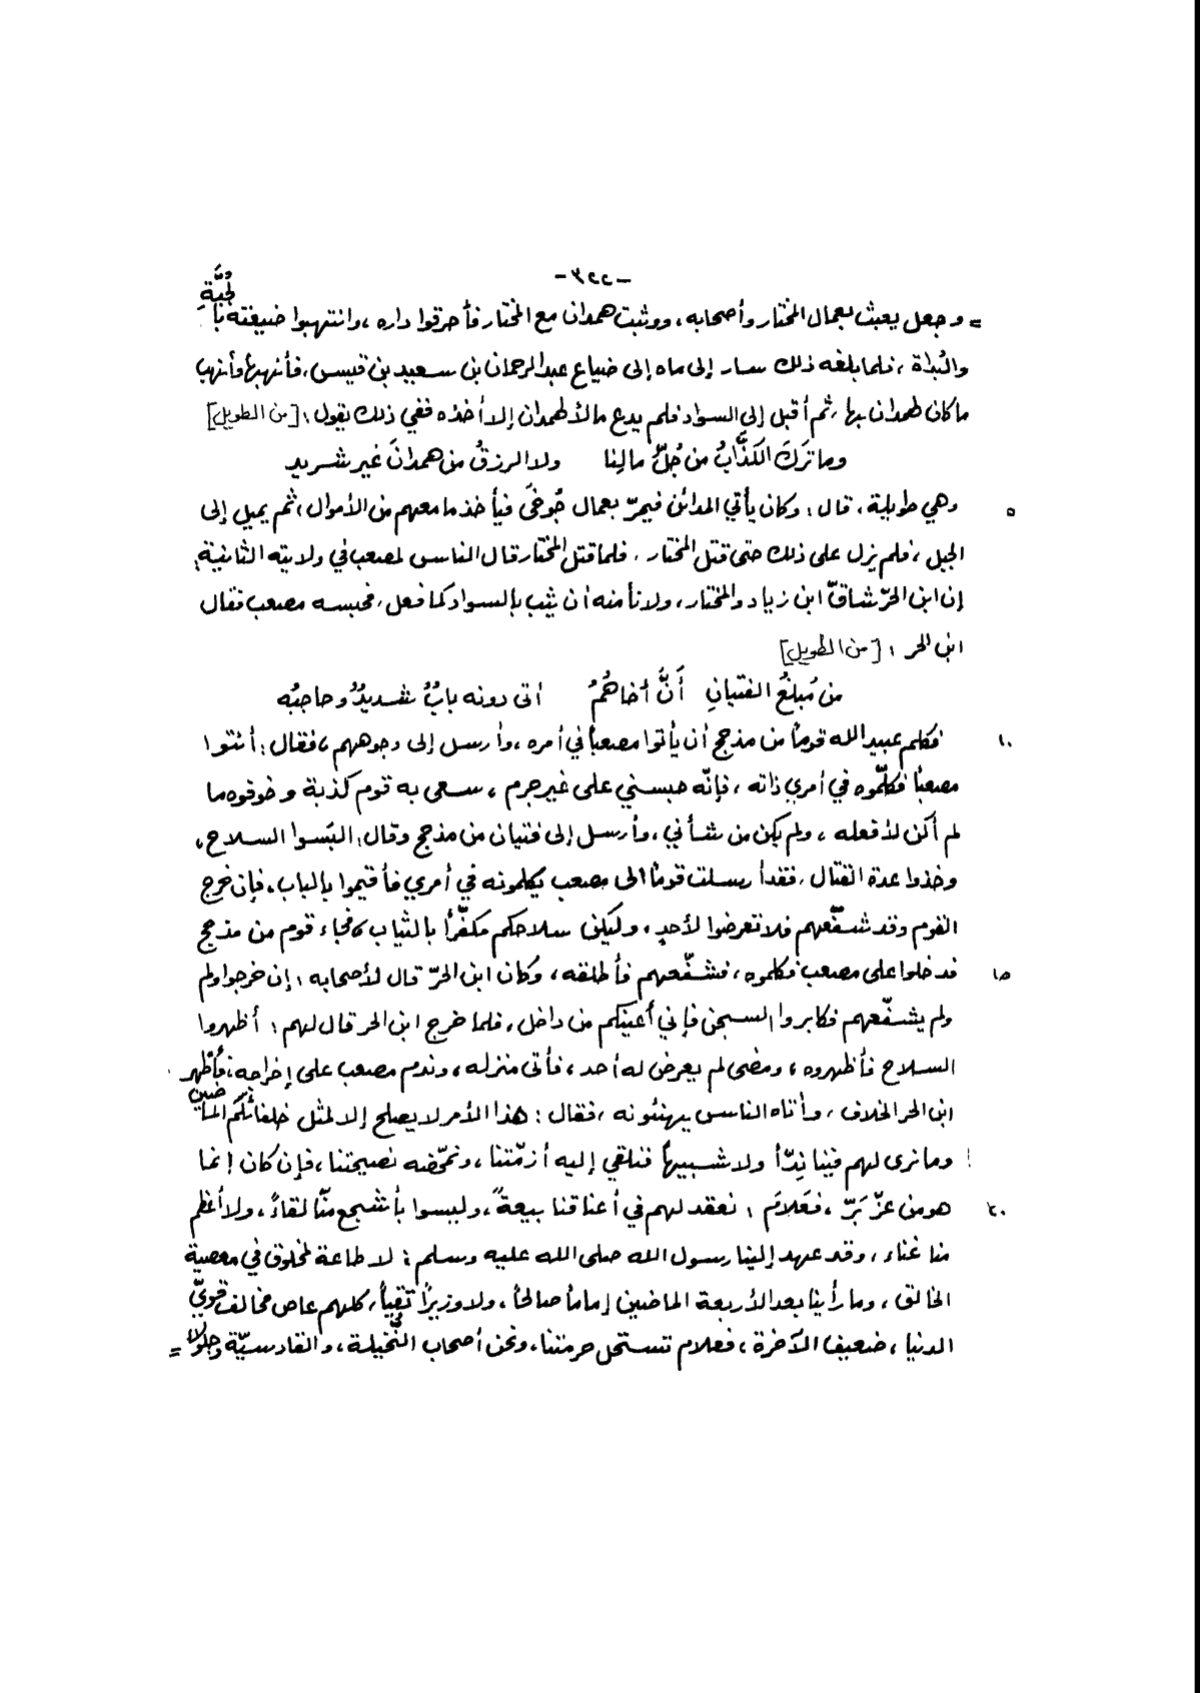 -٣٢٢-
= وجعل يعبث بعمال المختار وأصحابه، ووثبت همدان مع المختار فأحرقوا داره، وانتهبوا ضيعته بالجُبَّةِ
والبُداة، فلما بلغه ذلك سار إلى ماه إلى ضياع عبد الرحمان بن سعيد بن قيس، فأنهبها وأنهب
ما كان لهمدان بها، ثم أقبل إلى السواد فلم يدع مالاً لهمدان إلا أخذه ففي ذلك يقول: [من الطويل]
وما تَرَكَ الكَذَّابُ من جُلِّ مالِنا ولا الرزقُ من همدانَ غير شريد
وهي طويلة، قال: وكان يأتي المدائن فيمرّ بعمال جُوخَى فيأخذ ما معهم من الأموال، ثم يميل إلى ٥
الجبل، فلم يزل على ذلك حتى قتل المختار. فلما قتل المختار قال الناس لمصعب في ولايته الثانية:
إن ابن الحرّ شاقّ ابن زياد والمختار، ولا نأمنه أن يثب بالسواد كما فعل، فحبسه مصعب فقال
ابن الحر: [من الطويل]
من مُبلغُ الفتيانِ أَنَّ أخاهُمُ أتى دونه بابٌ شديدٌ وحاجبُه
فكلم عبيد الله قوماً من مذحج أن يأتوا مصعباً في أمره، وأرسل إلى وجوههم، فقال: أئتوا ١٠
مصعباً فكلّموه في أمري ذاته، فإنّه حبسني على غير جرم، سعى به قوم كذبة وخوفوه ما
لم أكن لأفعله، ولم يكن من شأني، وأرسل إلى فتيان من مذحج وقال: البَسوا السلاح،
وخذوا عدة القتال، فقد أرسلت قوماً الى مصعب يكلمونه في أمري فأقيموا بالباب، فإن خرج
القوم وقد شفّعهم فلا تعرضوا لأحدٍ، وليكن سلاحكم مكفّراً بالثياب، فجاء قوم من مذحج
فدخلوا على مصعب فكلموه، فشفّعهم فأطلقه، وكان ابن الحرّ قال لأصحابه: إن خرجوا ولم ١٥
ولم يشفّعهم فكابروا السجن فإني أعينكم من داخل، فلما خرج ابن الحر قال لهم: أظهروا
السلاح فأظهروه، ومضى لم يعرض له أحد، فأتى منزله، وندم مصعب على إخراجه، فأظهر
ابن الحر الخلاف، وأتاه الناس يهنئونه، فقال: هذا الأمر لا يصلح إلا لمثل خلفائكم الماضين
وما نرى لهم فينا نِدّاً ولا شبيهاً فنلقي إليه أزمّتنا، ونمحّضه نصيحتنا، فإن كان إنما
هو من عزّ بَزّ، فعَلامَ: نعقد لهم في أعناقنا بيعةً، وليسوا بأشجع منّا لقاءً، ولا أعظم ٢٠
منا غناء، وقد عهد إلينا رسول الله صلى الله عليه وسلم: لا طاعة لمخلوق في معصية
الخالق، وما رأينا بعد الأربعة الماضين إماماً صالحاً، ولا وزيراً تقياً، كلهم عاص مخالف قويّ
الدنيا، ضعيف الآخرة، فعلام تستحل حرمتنا، ونحن أصحاب النُّخيلة، والقادسيّة وجلولا =